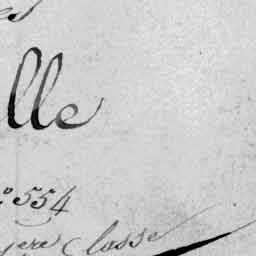 es
lle
° 554
yere Classe